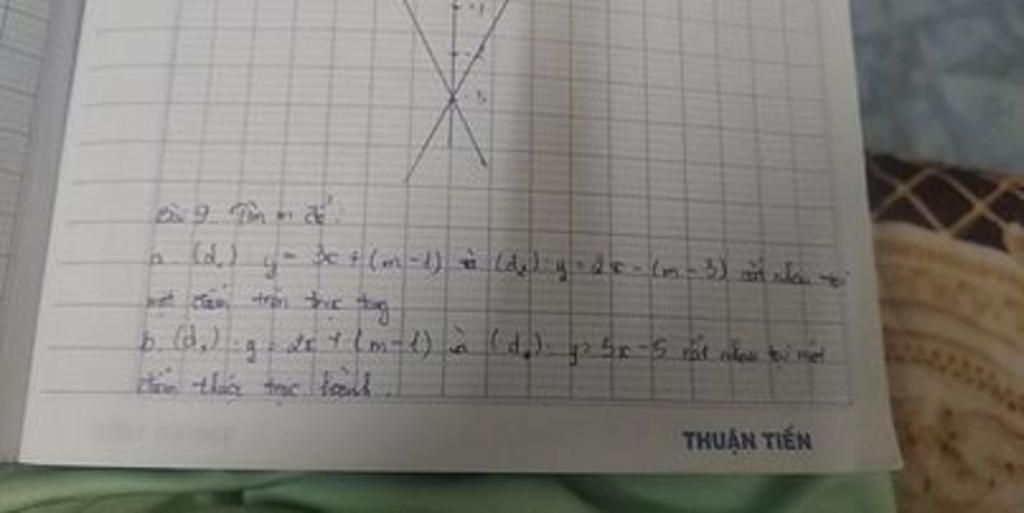 -1
3
Bài 9. Tìm m để:
a. (d₁) y = 3x + (m-1) và (d₂): y = 2x - (m-3) cắt nhau tại
một điểm trên trục tung
b. (d₁): y = 2x + (m-1) và (d₂): y = 5x - 5 cắt nhau tại một
điểm thuộc trục hoành.
THUẬN TIẾN